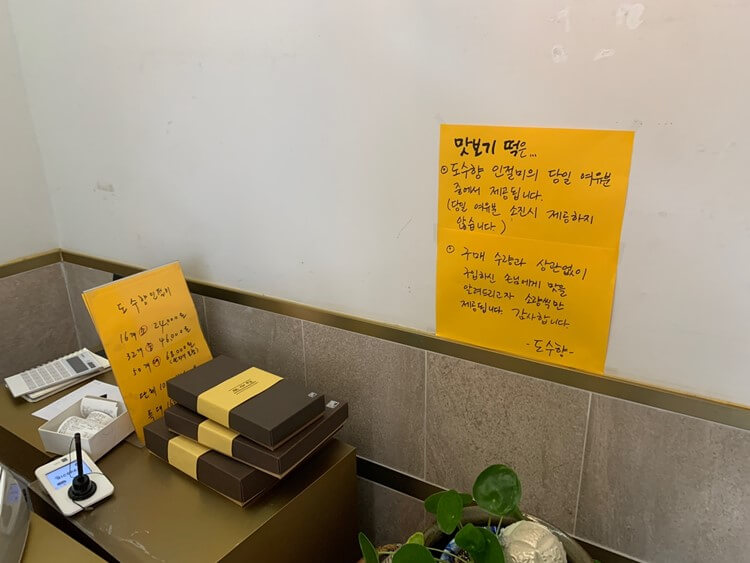 도수향 인절미
16개 (소) 24,000원
32개 (중) 46,000원
50개 (대) 68,000원
맛보기 떡은...
도수향 인절미의 당일 여유분
중에서 제공됩니다.
(당일 여유분 소진시 제공하지
않습니다)
구매 수량과 상관없이
구입하신 손님에게 맛을
알려드리고자 소량씩만
제공됩니다. 감사합니다
-도수향-